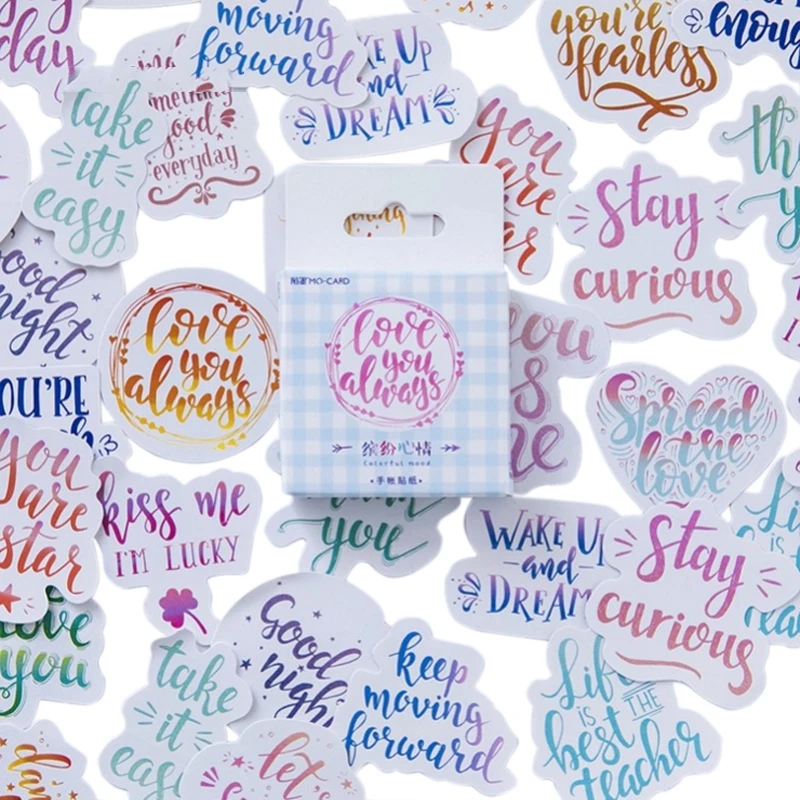 day
moving
forward
UP
and
DREAM
you're
fearless
enough
take
it
easy
something
good
everyday
you
are
Stay
curious
good
night.
陌墨 MO·CARD
love
you
always
love
you
always
缤纷心情
Colorful mood
·手账贴纸·
YOU'RE
you
are
star
kiss me
I'M LUCKY
you
WAKE UP
and
DREAM
Spread
the
love
Stay
curious
love
you
Good
night
take
it
easy
keep
moving
forward
Life
IS THE
best
teacher
let's